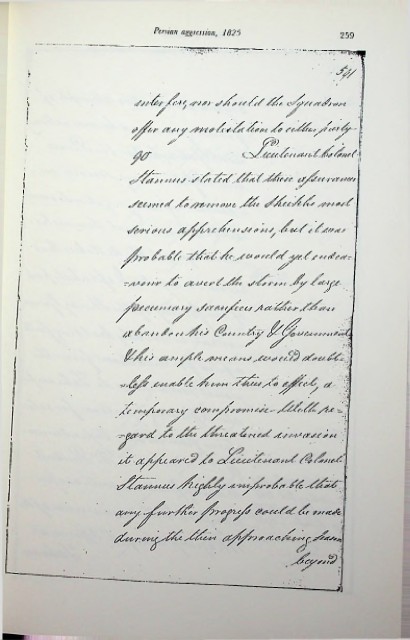 Persian aggression, 1825
259
591
interfere, nor should the Squadron
offer any molestation to either party
90 Lieutenant Colonel
Stannus stated that these assurances
seemed to remove the Sheikhs most
serious apprehensions, but it was
probable that he would yet endea-
-vour to avert the storm by large
pecuniary sacrifices rather than
abandon his Country & Government
& his ample means would doubt-
-less enable him thus to effect, a
temporary compromise. With re-
-gard to the threatened invasion
it appeared to Lieutenant Colonel
Stannus highly improbable that
any further progress could be made
during the then approaching season
beyond